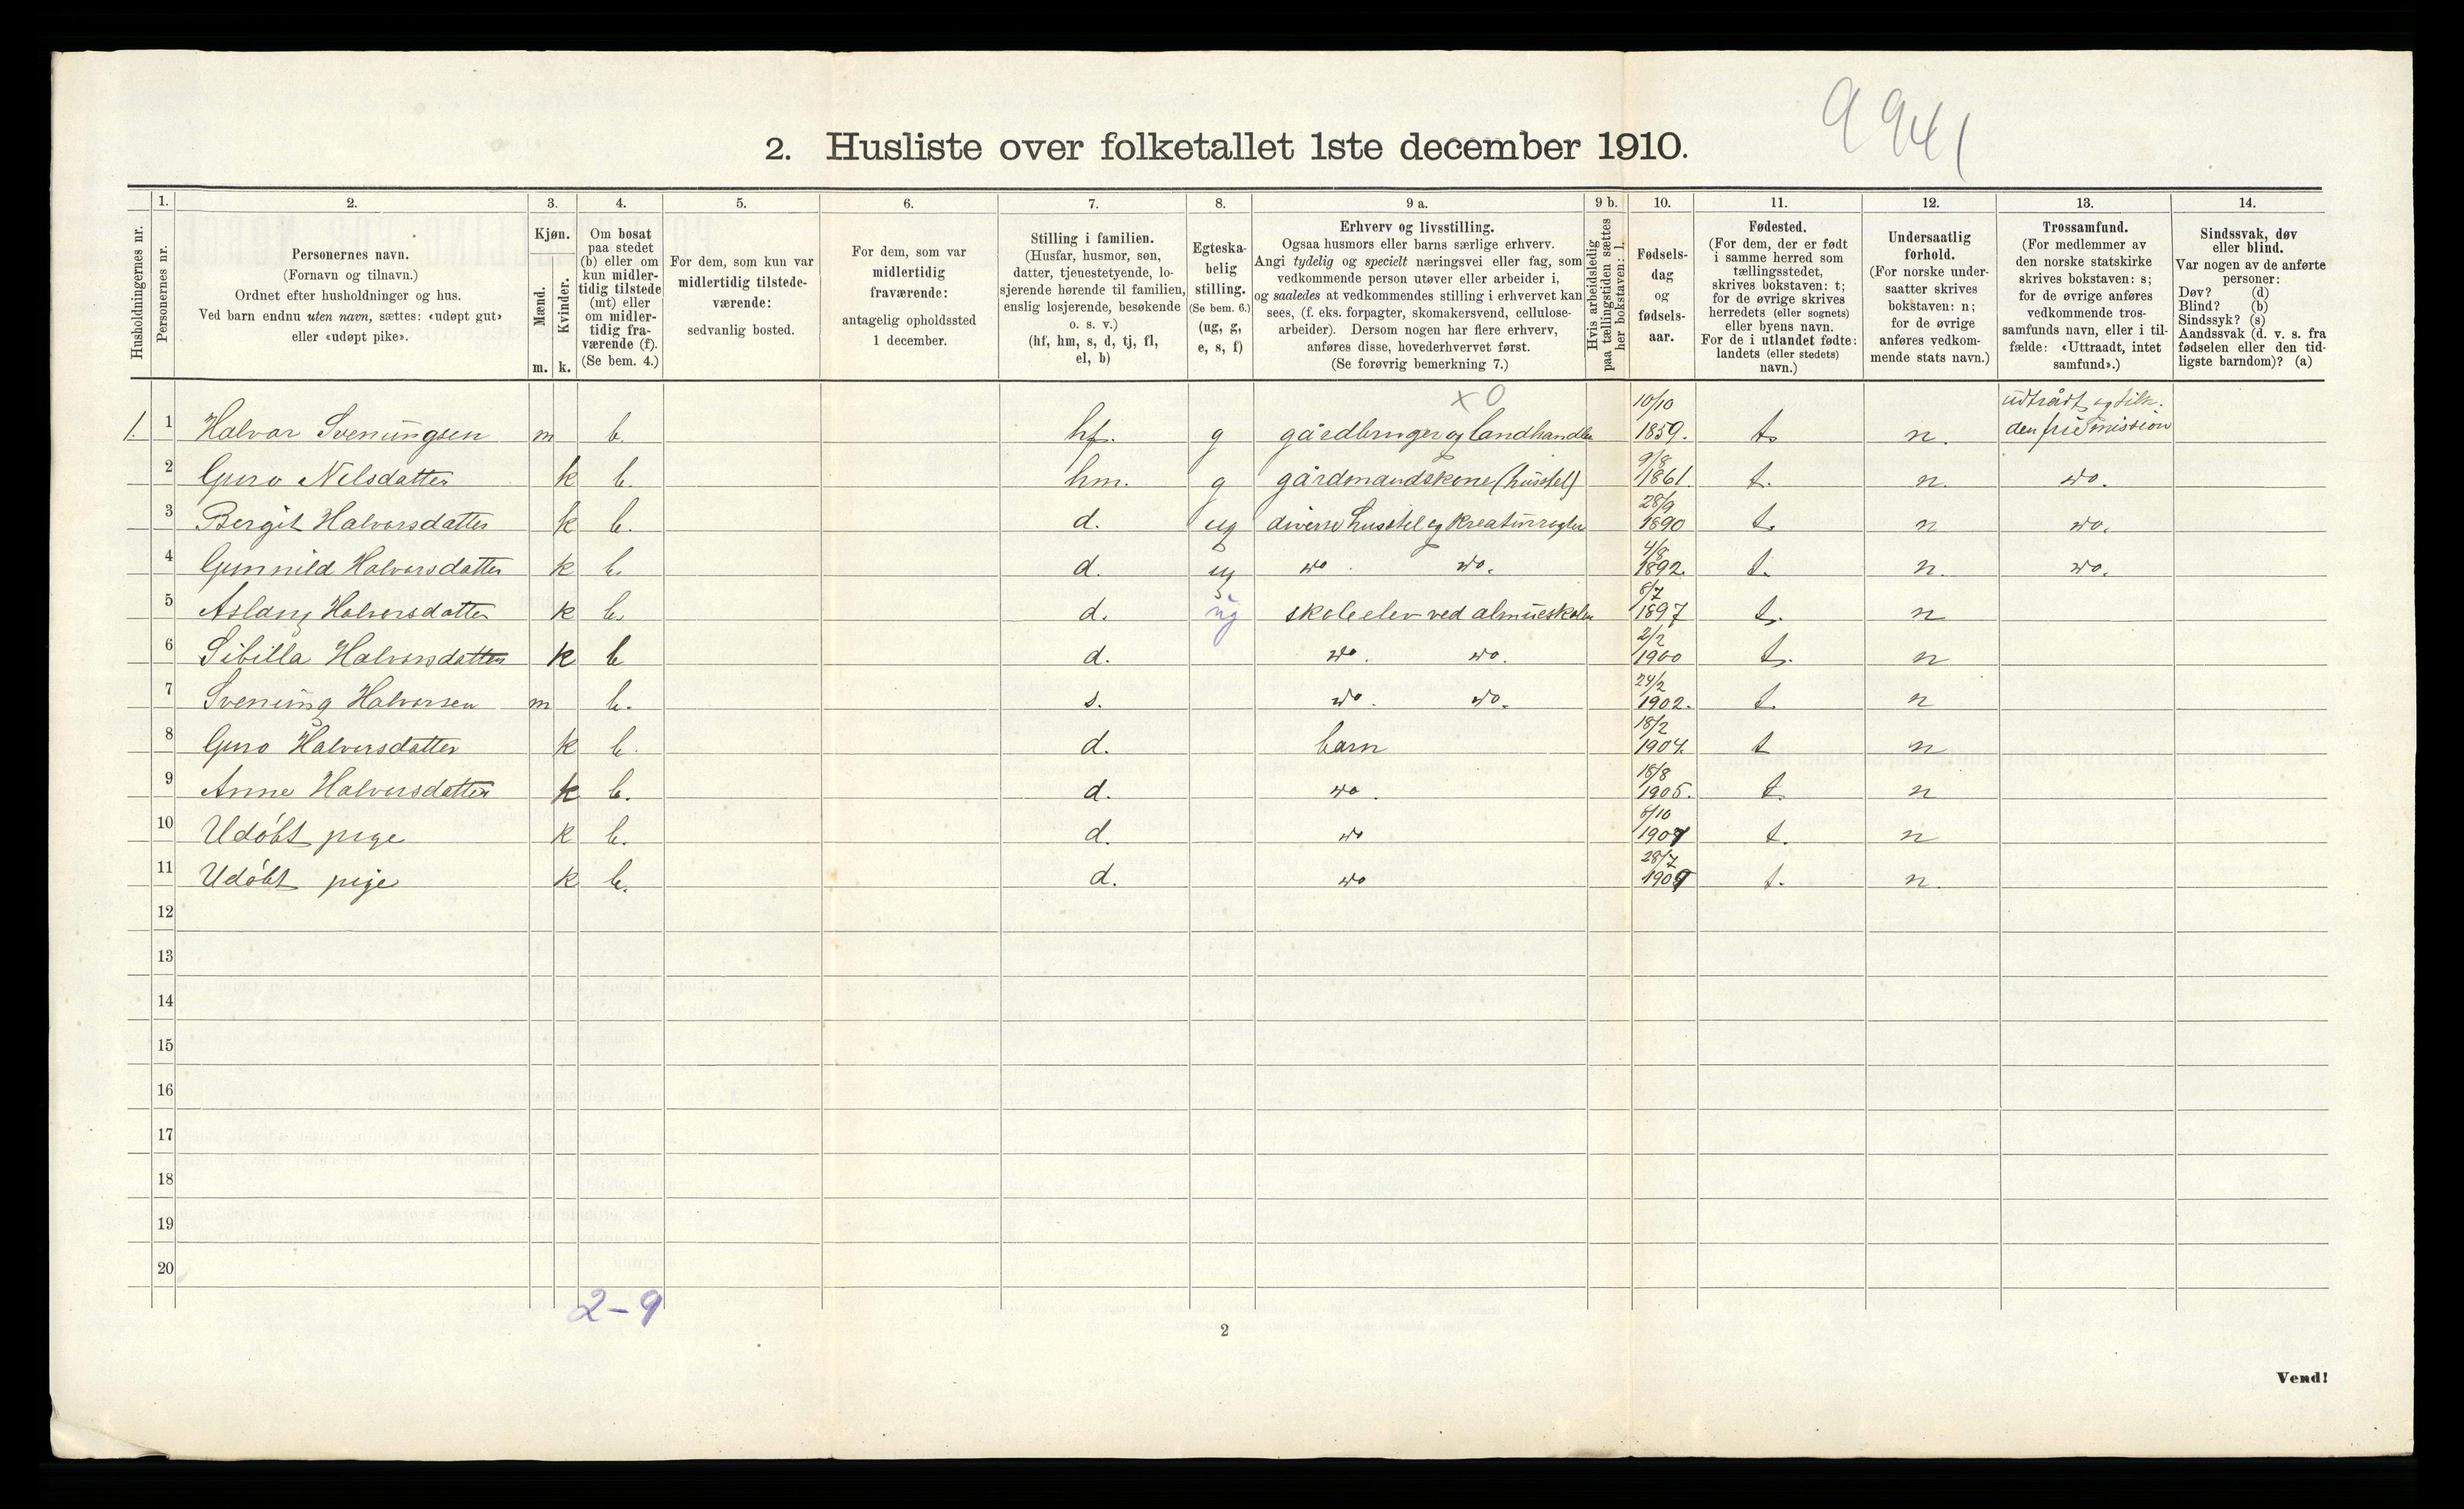 9941
2. Husliste over folketallet 1ste december 1910.
Husholdningernes nr.
1.
Personernes nr.
2.
Personernes navn.
(Fornavn og tilnavn.)
Ordnet efter husholdninger og hus.
Ved barn endnu uten navn, sættes: «udøpt gut»
eller «udøpt pike».
3.
Kjøn.
Mænd.
Kvinder.
m. k.
4.
Om bosat
paa stedet
(b) eller om
kun midler-
tidig tilstede
(mt) eller
om midler-
tidig fra-
værende (f).
(Se bem. 4.)
5.
For dem, som kun var
midlertidig tilstede-
værende:
sedvanlig bosted.
6.
For dem, som var
midlertidig
fraværende:
antagelig opholdssted
1 december.
7.
Stilling i familien.
(Husfar, husmor, søn,
datter, tjenestetyende, lo-
sjerende hørende til familien,
enslig losjerende, besøkende
o. s. v.)
(hf, hm, s, d, tj, fl,
el, b)
8.
Egteska-
belig
stilling.
(Se bem. 6.)
(ug, g,
e, s, f)
9 a.
Erhverv og livsstilling.
Ogsaa husmors eller barns særlige erhverv.
Angi tydelig og specielt næringsvei eller fag, som
vedkommende person utøver eller arbeider i,
og saaledes at vedkommendes stilling i erhvervet kan
sees, (f. eks. forpagter, skomakersvend, cellulose-
arbeider). Dersom nogen har flere erhverv,
anføres disse, hovederhvervet først.
(Se forøvrig bemerkning 7.)
9 b.
Hvis arbeidsledig
paa tællingstiden sættes
her bokstaven: l.
10.
Fødsels-
dag
og
fødsels-
aar.
11.
Fødested.
(For dem, der er født
i samme herred som
tællingsstedet,
skrives bokstaven: t;
for de øvrige skrives
herredets (eller sognets)
eller byens navn.
For de i utlandet fødte:
landets (eller stedets)
navn.)
12.
Undersaatlig
forhold.
(For norske under-
saatter skrives
bokstaven: n;
for de øvrige
anføres vedkom-
mende stats navn.)
13.
Trossamfund.
(For medlemmer av
den norske statskirke
skrives bokstaven: s;
for de øvrige anføres
vedkommende tros-
samfunds navn, eller i til-
fælde: «Uttraadt, intet
samfund».)
14.
Sindssvak, døv
eller blind.
Var nogen av de anførte
personer:
Døv? (d)
Blind? (b)
Sindssyk? (s)
Aandssvak (d. v. s. fra
fødselen eller den tid-
ligste barndom)? (a)
x 0
1. 1 Halvor Sveningsen m b. hf. g gårdbruger og landhandler 10/10 1859. t. n. udtrådt og tilh. den fri mission
2 Guro Nilsdatter k b. hm. g gårdmandskone (husstel) 9/8 1861. t. n. do.
3 Bergit Halvorsdatter k b. d. ug diverse husstel og kreaturrøgter 28/9 1890 t. n do.
4 Gunnild Halvorsdatter k b. d. ug do. do. 4/8 1892. t. n. do.
5 Aslaug Halvorsdatter k b. d. ug skoleelev ved almueskolen 5/7 1897 t. n
6 Sibilla Halvorsdatter k b d. do. do. 2/2 1900 t. n
7 Svenung Halvorsen m b. s. do. do. 24/2 1902. t. n
8 Guro Halvorsdatter k b. d. barn 18/2 1904. t n
9 Anne Halvorsdatter k b. d. do. 18/8 1905. t. n
10 Udøbt pige k b. d. do 6/10 1907 t. n
11 Udøbt pige k b. d. do 28/7 1909 t. n.
12
13
14
15
16
17
18
19
20
2-9
2
Vend!